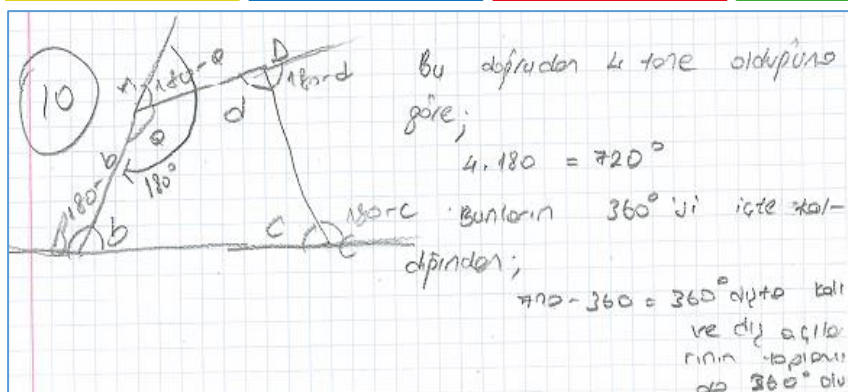 10
A
180-a
D
180-d
a
d
b
180-
180°
B
b
C
180-c
C
Bu doğrudan 4 tane olduğuna
göre;
4.180 = 720°
Bunların 360°'si içte kal-
dığından;
720-360 = 360° dışta kalı
ve dış açıla
rının toplamı
da 360° olu